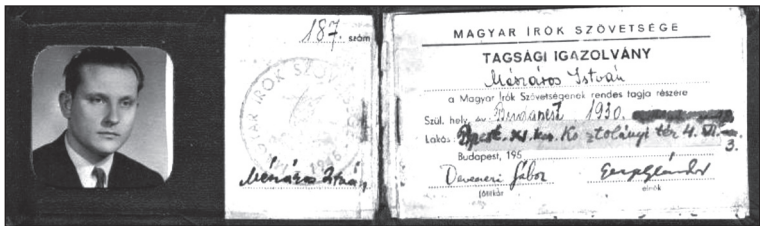 187. szám
MAGYAR ÍRÓK SZÖVETSÉGE
1945
Mészáros István
MAGYAR ÍRÓK SZÖVETSÉGE
TAGSÁGI IGAZOLVÁNY
Mészáros István
a Magyar Írók Szövetségének rendes tagja részére
Szül. hely, év Budapest 1930.
Lakás Bpest. XI. ker. Kosztolányi tér 4. 3.
Budapest, 195
Devecseri Gábor
főtitkár elnök